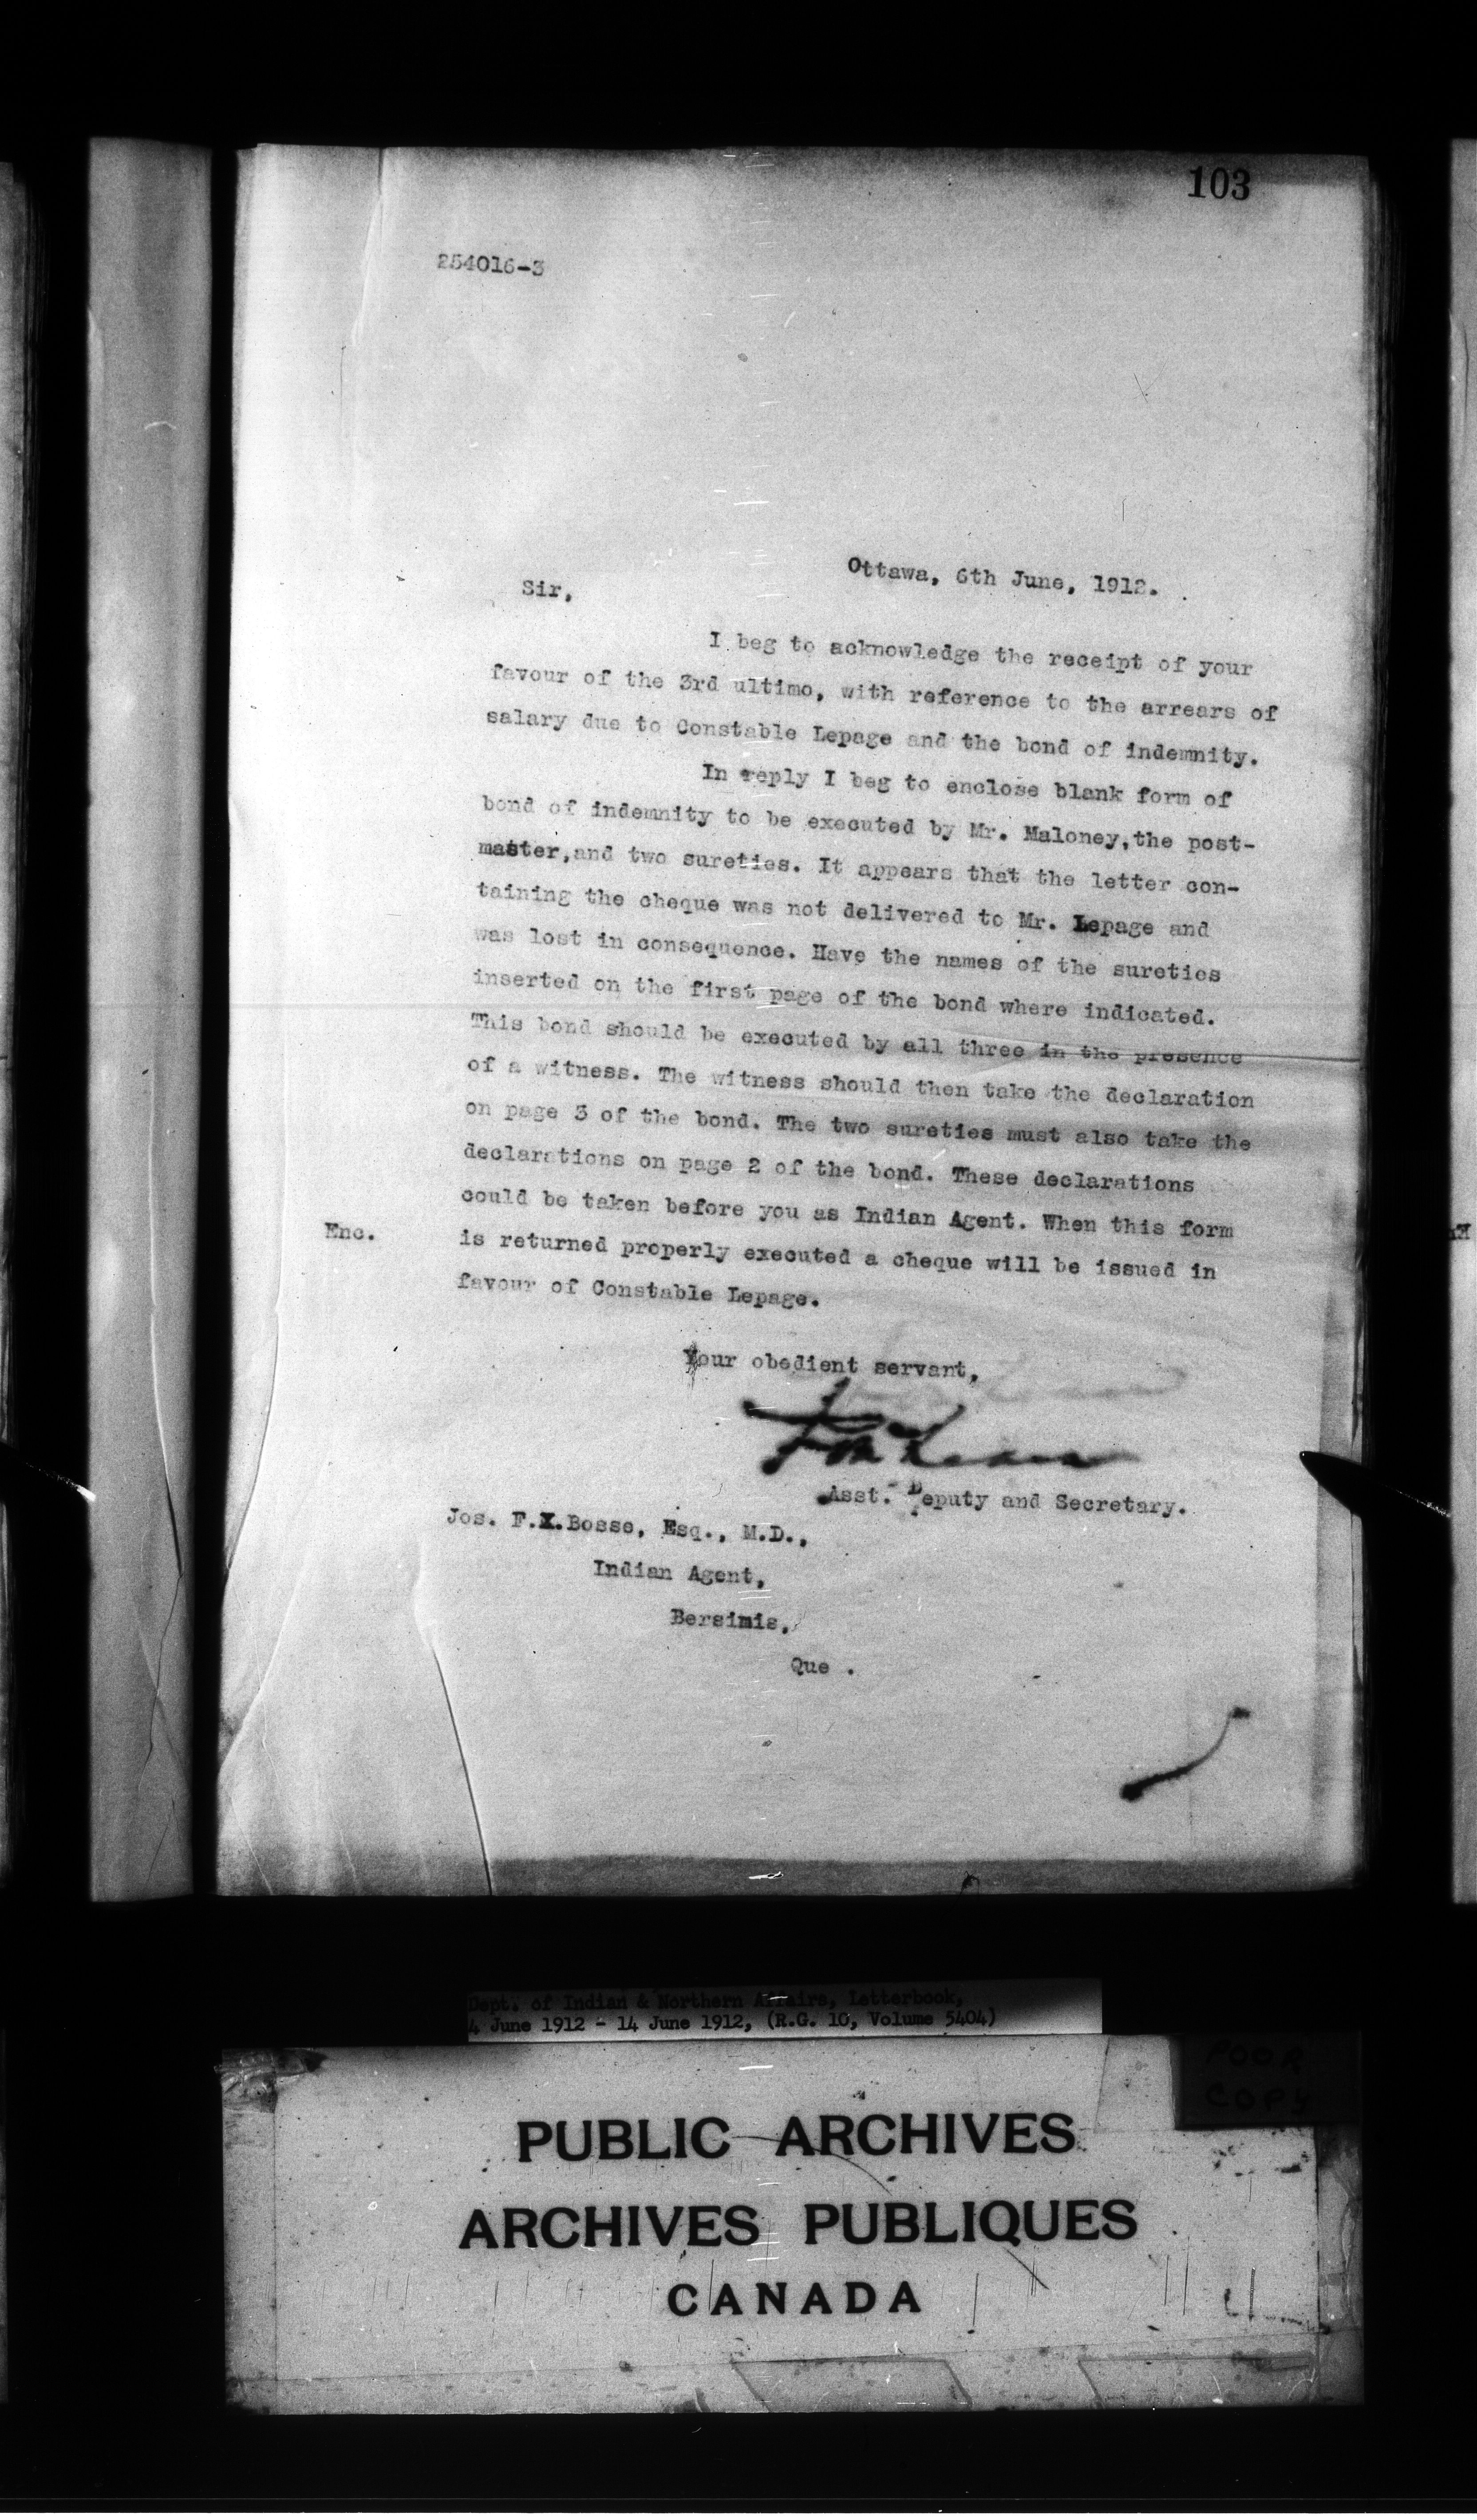 103
254016-3
Ottawa, 6th June, 1912.
Sir,
I beg to acknowledge the receipt of your
favour of the 3rd ultimo, with reference to the arrears of
salary due to Constable Lepage and the bond of indemnity.
In reply I beg to enclose blank form of
bond of indemnity to be executed by Mr. Maloney,the post-
master,and two sureties. It appears that the letter con-
taining the cheque was not delivered to Mr. Lepage and
was lost in consequence. Have the names of the sureties
inserted on the first page of the bond where indicated.
This bond should be executed by all three in the presence
of a witness. The witness should then take the declaration
on page 3 of the bond. The two sureties must also take the
declarations on page 2 of the bond. These declarations
could be taken before you as Indian Agent. When this form
Enc.
is returned properly executed a cheque will be issued in
favour of Constable Lepage.
Your obedient servant,
Asst. Deputy and Secretary.
Jos. F.X.Bosse, Esq., M.D.,
Indian Agent,
Bersimis,
Que .
Dept. of Indian & Northern Affairs, Letterbook,
4 June 1912 - 14 June 1912, (R.G. 10, Volume 5404)
POOR
COPY
PUBLIC ARCHIVES
ARCHIVES PUBLIQUES
CANADA